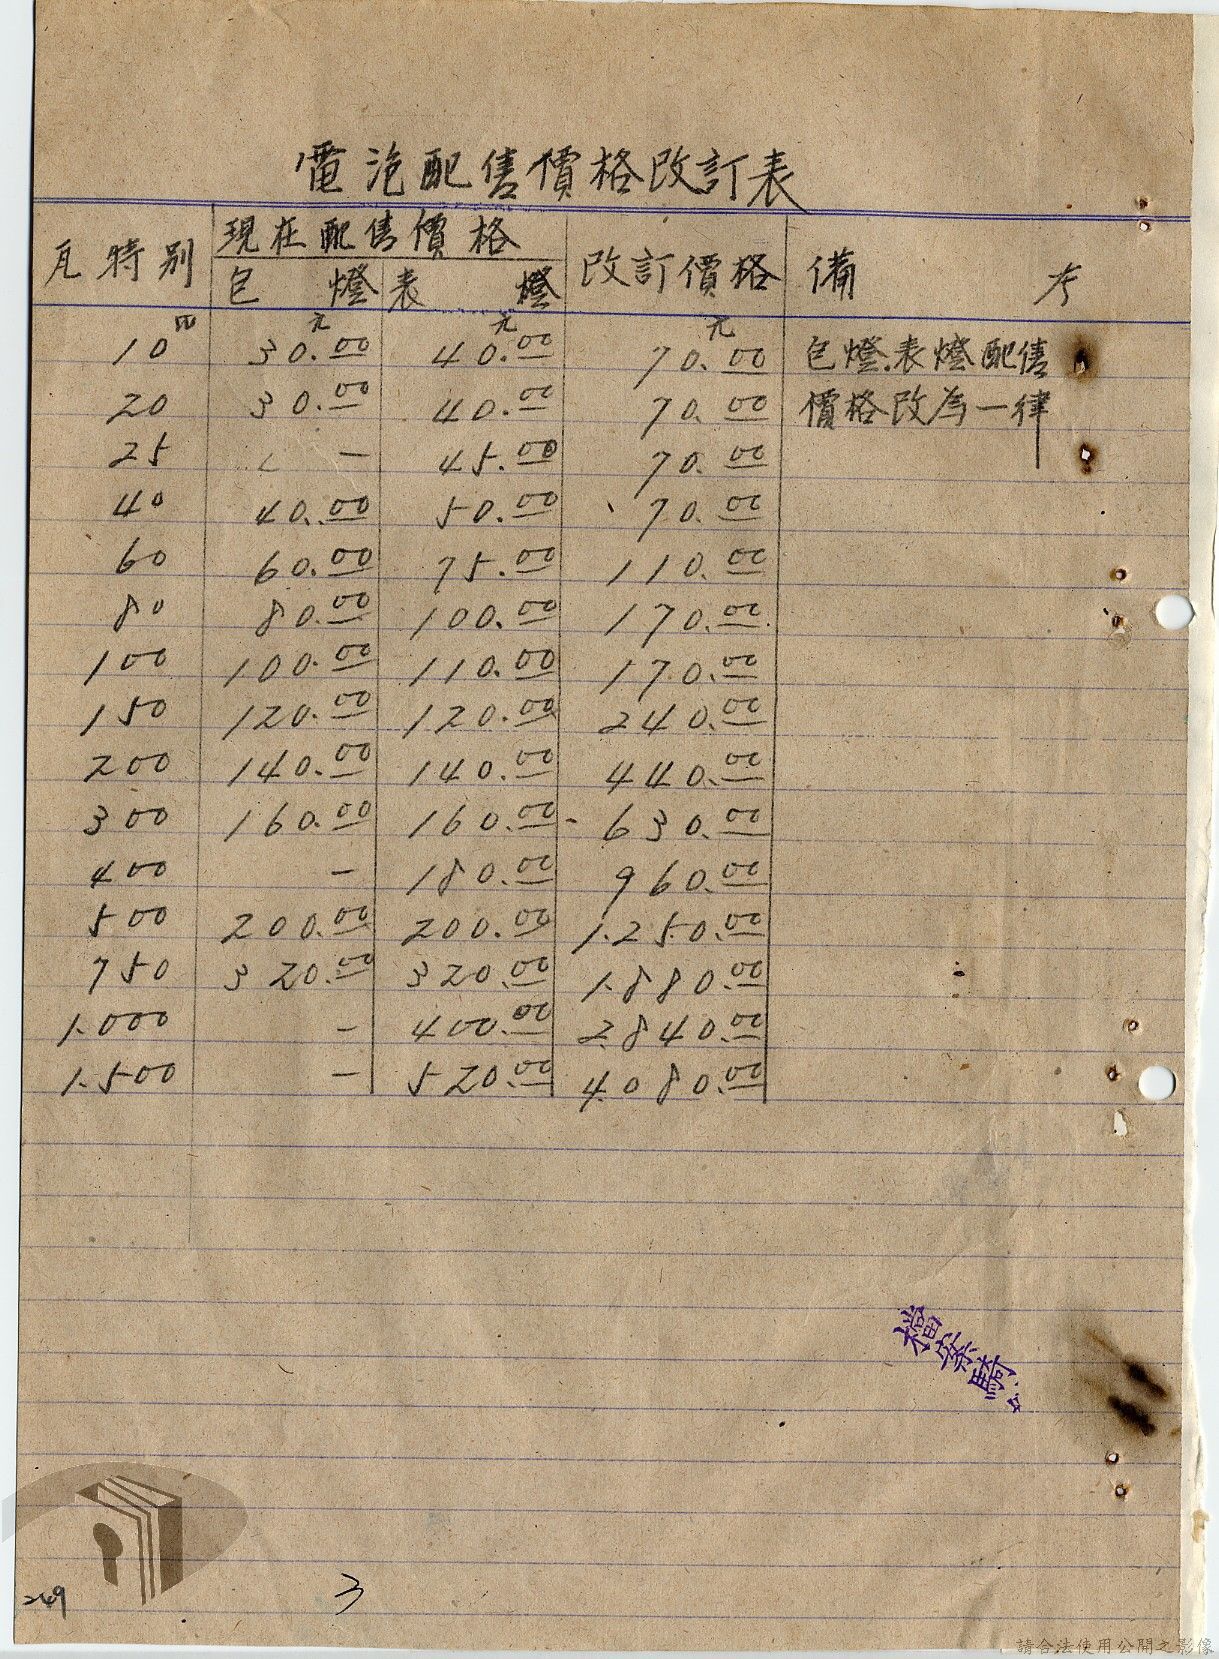 電泡配售價格改訂表
瓦特別 現在配售價格 改訂價格 備考
包燈 表燈
10 30.00元 40.00元 70.00元 包燈.表燈配售
20 30.00 40.00 70.00 價格改為一律
25 — 45.00 70.00
40 40.00 50.00 70.00
60 60.00 75.00 110.00
80 80.00 100.00 170.00
100 100.00 110.00 170.00
150 120.00 120.00 240.00
200 140.00 140.00 440.00
300 160.00 160.00 630.00
400 — 180.00 960.00
500 200.00 200.00 1.250.00
750 320.00 320.00 1.880.00
1.000 — 400.00 2.840.00
1.500 — 520.00 4.080.00
檔案騎
249
3
請合法使用公開之影像